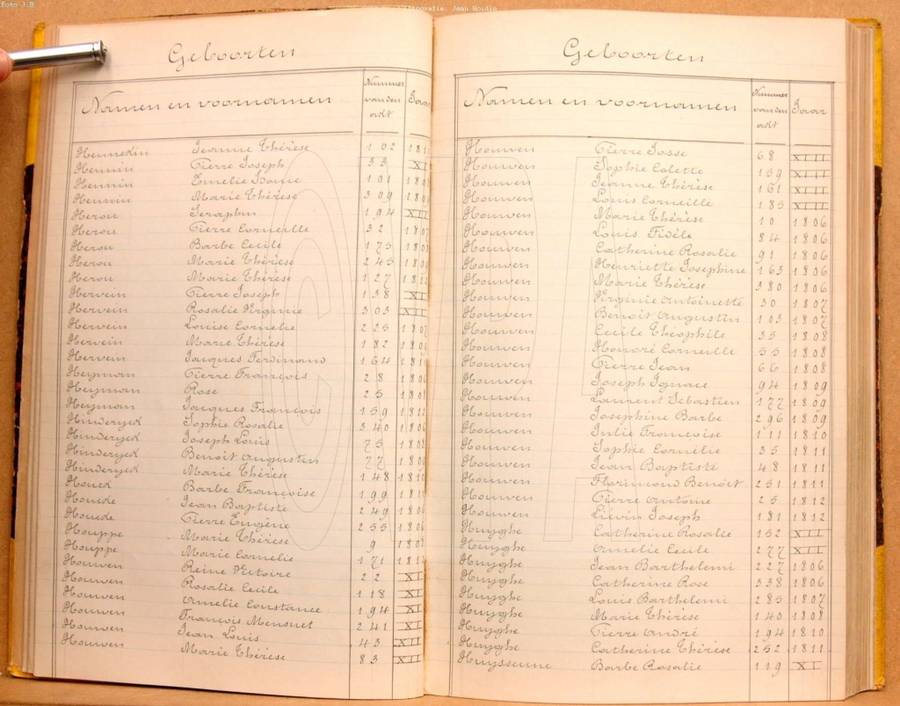 Foto J.B
Fotografie: Jean Boudin
Geboorten
Namen en voornamen
Nummer van den acht
Jaar
Hennedin Jeanne Thérèse 102 181
Hennin Pierre Joseph 33 XI
Hennin Emelie 101 180
Hennin Marie Thérèse 309 180
Herou Seraphin 194 XII
Herou Pierre Corneille 32 180
Herou Barbe Cecile 175 180
Herou Marie Thérèse 245 180
Herou Marie Thérèse 127 181
Hervein Pierre Joseph 138 XI
Hervein Rosalie Virginie 303 XII
Hervein Louise Cornelie 225 180
Hervein Marie Thérèse 182 180
Hervein Jacques Ferdinand 164 181
Heyman Pierre François 28 180
Heyman Rose 25 180
Heyman Jacques François 159 181
Hinderyck Sophie Rosalie 340 180
Hinderyck Joseph Louis 75 180
Hinderyck Benoit Augustin 77 180
Hinderyck Marie Thérèse 148 181
Houck Barbe Françoise 199 181
Houcke Jean Baptiste 249 180
Houcke Pierre Eugénie 255 1806
Houppe Marie Thérèse 9 180
Houppe Marie Cornelie 171 181
Houwen Reine Victoire 22 XI
Houwen Rosalie Cecile 118 XI
Houwen Amelie Constance 194 XI
Houwen François 241 XI
Houwen Jean Louis 43 XII
Houwen Marie Thérèse 83 XII
Geboorten
Namen en voornamen
Nummer van den acht
Jaar
Houwen Pierre Josse 68 XIII
Houwen Sophie Colette 159 XIII
Houwen Jeanne Thérèse 161 XIII
Houwen Louis Corneille 185 XIII
Houwen Marie Thérèse 10 1806
Houwen Louis Fidèle 84 1806
Houwen Catherine Rosalie 91 1806
Houwen Henriette Josephine 163 1806
Houwen Marie Thérèse 380 1806
Houwen Virginie Antoinette 30 1807
Houwen Benoit Augustin 103 1807
Houwen Cecile Théophile 35 1808
Houwen Honoré Corneille 55 1808
Houwen Pierre Jean 66 1808
Houwen Joseph Ignace 94 1809
Houwen Laurent Sebastien 177 1809
Houwen Josephine Barbe 296 1809
Houwen Julie Françoise 111 1810
Houwen Sophie Cornélie 35 1811
Houwen Jean Baptiste 48 1811
Houwen Florimond Benoit 251 1811
Houwen Pierre Antoine 25 1812
Houwen Liévin Joseph 181 1812
Huyghe Catherine Rosalie 152 XII
Huyghe Amelie Cecile 277 XII
Huyghe Jean Barthelemi 227 1806
Huyghe Catherine Rose 338 1806
Huyghe Louis Barthelemi 285 1807
Huyghe Marie Thérèse 140 1808
Huyghe Pierre André 194 1810
Huyghe Catherine Thérèse 252 1811
Huysseune Barbe Rosalie 119 XI